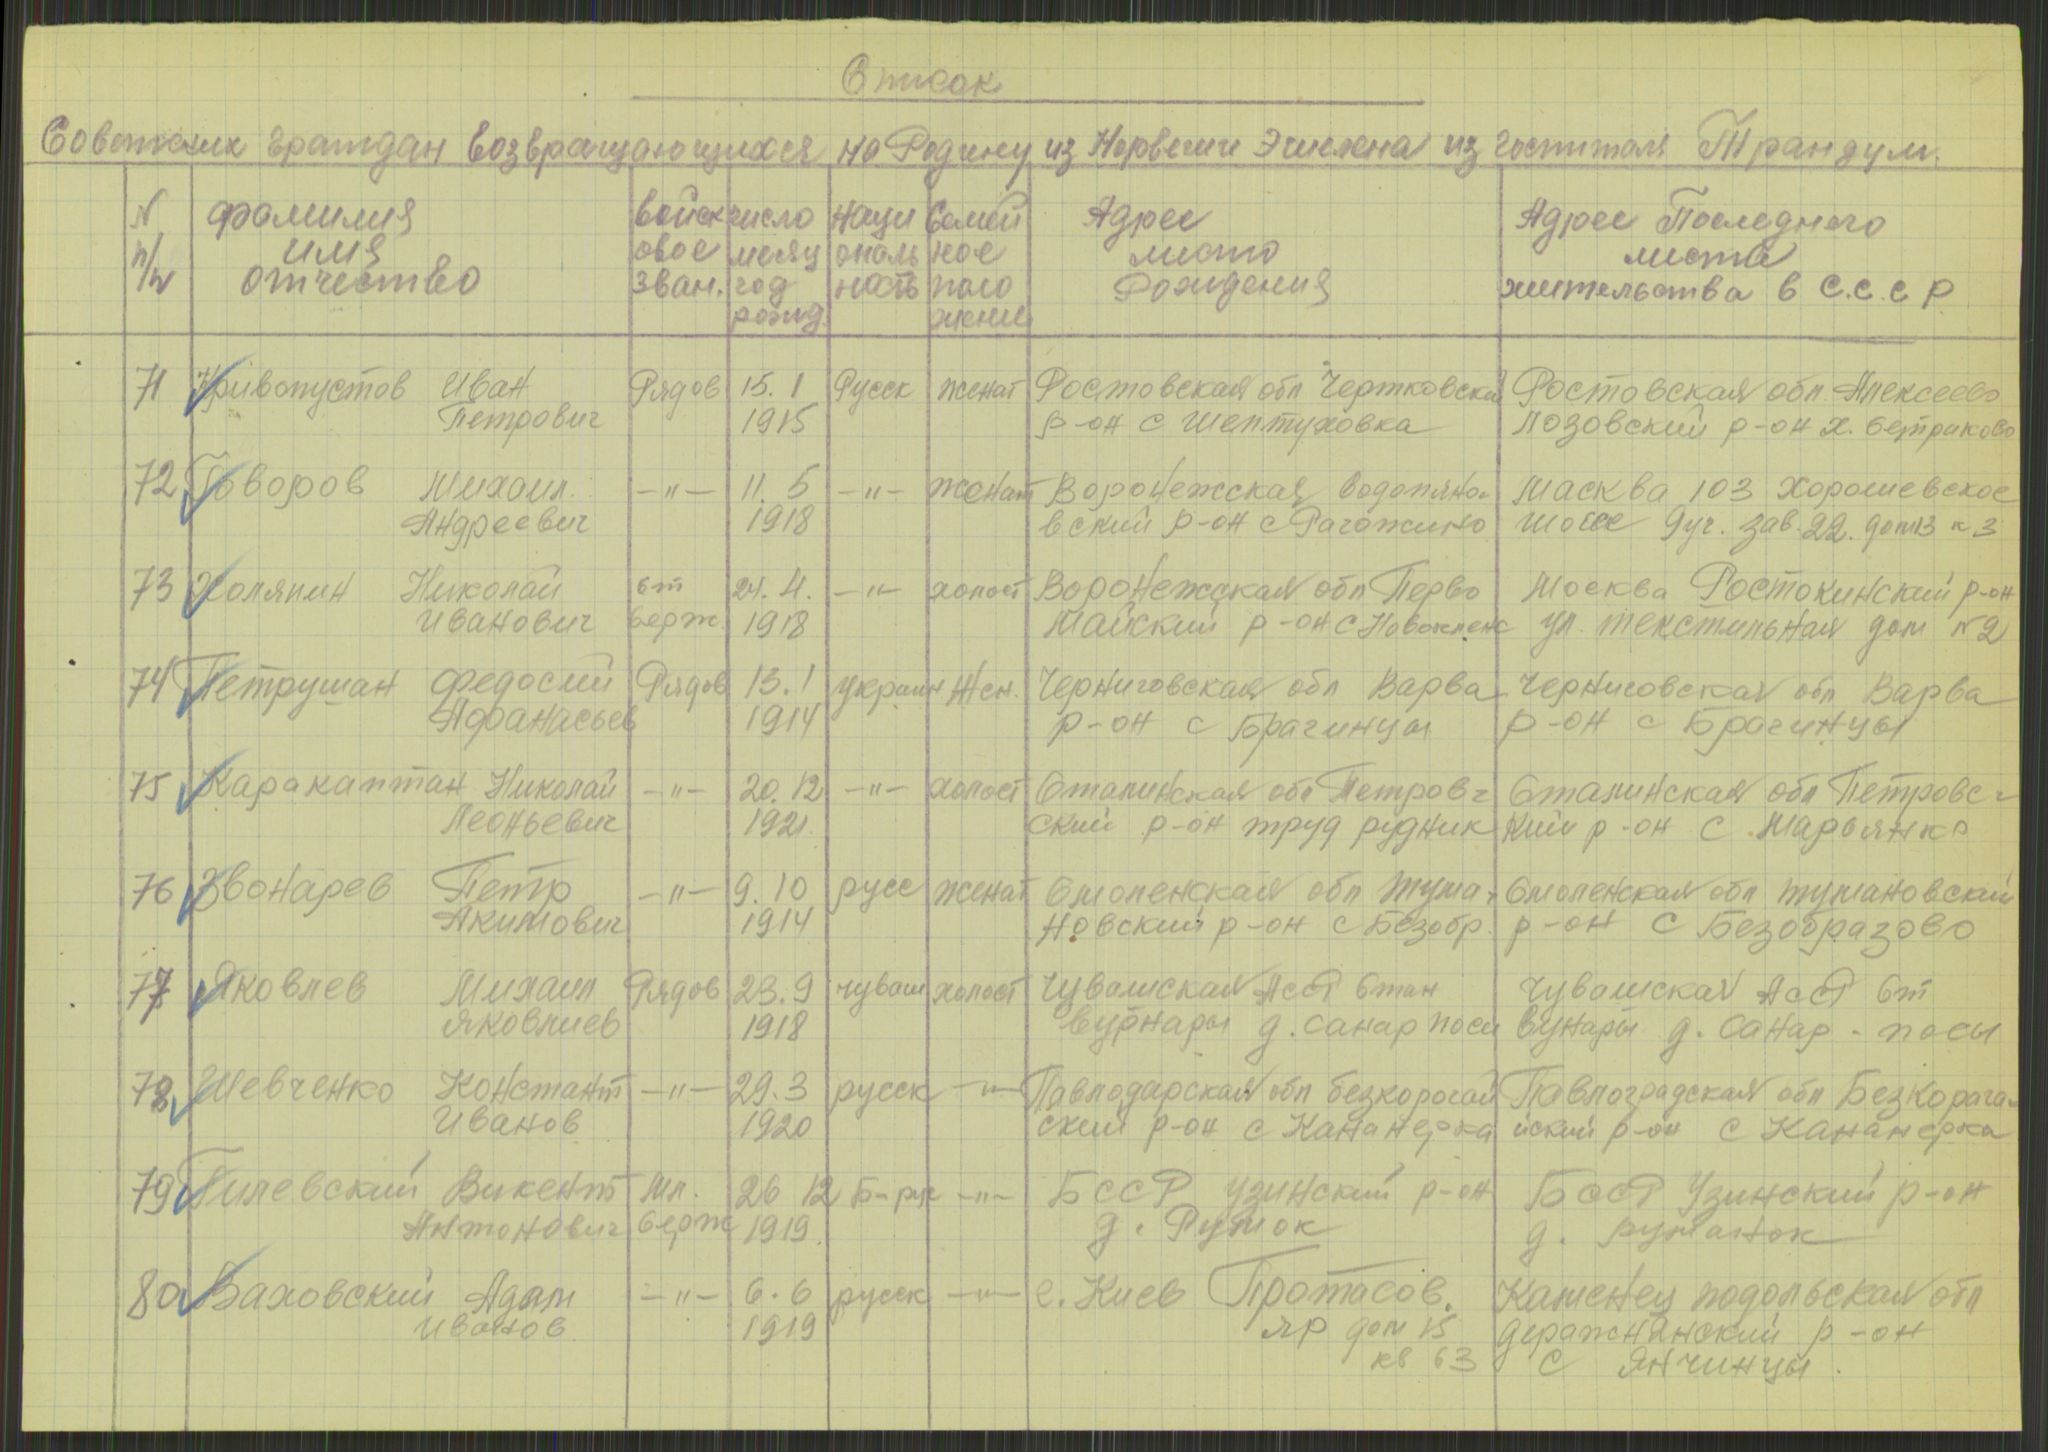 Список
Советских граждан возвращающихся на Родину из Норвегии из госпиталя Трандум.
N п/н
фамилия имя отчество
войск овое зван.
число месяц год рожд.
наци ональ ность
семей ное поло жение
Адрес место Рождения
Адрес Последнего места жительства в С.С.С Р
71 Кривопустов Иван Рядов 15. 1 Русск женат Ростовская обл Чертковский Ростовская обл. Алексеево
Петрович 1915 р-он с Шептуховка Лозовский р-он х.
72 Говоров Михаил -"- 11. 5 -"- женат Воронежская Водопяно- Масква 103 Хорошевское
Андреевич 1918 вский р-он с Рагожино шоссе 9 уч. зав. 22. дом 13 к 3
73 Холяпин Николай ст 24. 4. -"- холост Воронежская обл Перво Москва Ростокинский р-он
Иванович серж. 1918 Майский р-он с ул. текстильная дом N2
74 Петрушан Федосий Рядов 13. 1 украин Жен. Черниговская обл Варва Черниговская обл Варва
Афанасьев 1914 р-он с Брагинцы р-он с Брагинцы
75 Каракаптан Николай -"- 20. 12 -"- холост Сталинская обл Петров- Сталинская обл Петровс-
Леоньевич 1921. ский р-он труд рудник кий р-он с Марьянко
76 Звонарев Петр -"- 9. 10 русс женат Смоленская обл Тума- Смоленская обл тумановский
Акимович 1914 новский р-он с Безобр. р-он с Безобразово
77 Яковлев Михаил Рядов 23. 9 чуваш холост Чувашская АссР Стан Чувашская АссР Ст
Яковлиев 1918 Вурнары д. Санар поси Вунары д. Санар - посы
78 Шевченко Констант -"- 29. 3 русск -"- Павлодарская обл безкорогай Павлоградская обл БезКорага-
Иванов 1920 ский р-он с Кананерка йский р-он с Кананерка
79 Пилевский Викент Мл. 26 12 Б-рус -"- БССР Узинский р-он БССР Узинский р-он
Антонович серж 1919. д. д.
80 Ваховский Адам -"- 6. 6 русск -"- г. Киев Протасов. Каменец подольская обл
Иванов 1919 яр дом 15 деражнянский р-он
кв 63 с Янчинцы.